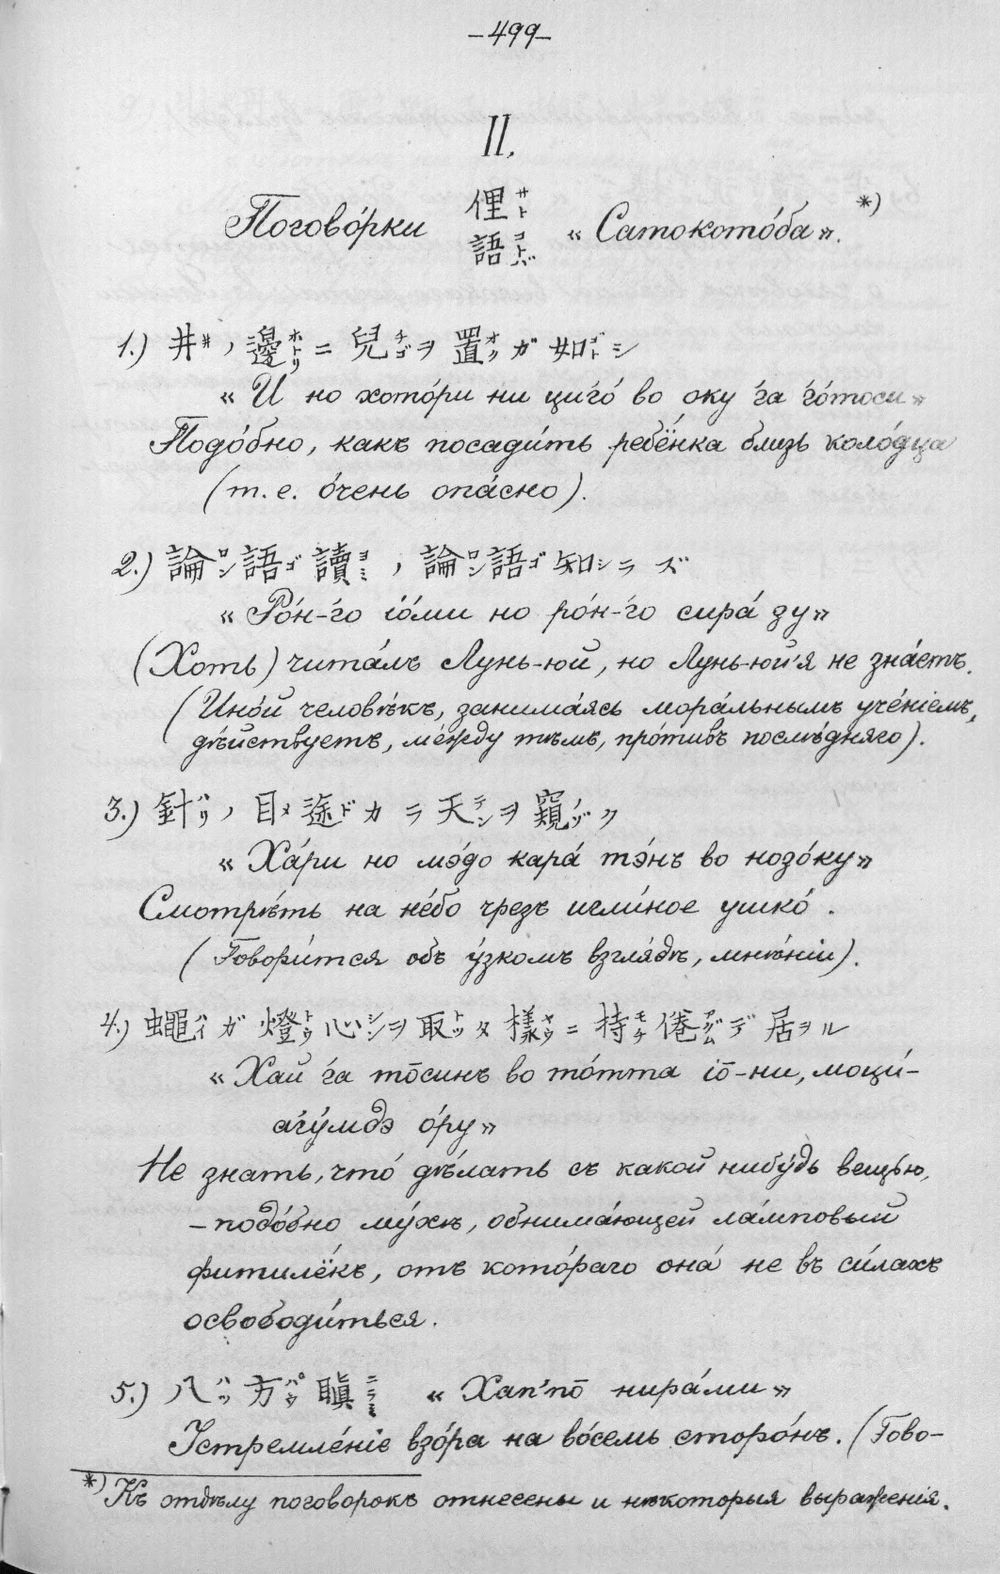 –499–
II.
Погово́рки 俚サト語コトバ « Сатокото́ба ». *)
1.) 井ヰノ邊ホトリニ兒チゴヲ置オクガ如ゴトシ
« И но хото́ри ни циго́ во оку г̓а г̓о́тоси »
Подо́бно, какъ посади́ть ребёнка близь коло́дца
(т. е. о́чень опа́сно).
2.) 論ロン語ゴ讀ヨミノ論ロン語ゴ知シラズ
« Ро́н-г̓о іо́ми но ро́н-г̓о сира́ ду »
(Хоть) чита́лъ Лунь-юй, но Лунь-юй'я не зна́етъ.
(Ино́й человѣкъ, занима́ясь мора́льнымъ уче́ніемъ,
дѣйствуетъ, ме́жду тѣмъ, про́тивъ послѣ́дняго).
3.) 針ハリノ目メ途ドカラ天テンヲ窺ノゾク
« Ха́ри но мэ́до кара́ тэ́нъ во нозо́ку »
Смотрѣ́ть на не́бо чрезъ игли́ное ушко́.
(Говори́тся объ у́зкомъ взгля́дѣ, мнѣ́ніи).
4.) 蠅ハイガ燈トウ心シンヲ取トッタ樣ヤウニ持モチ倦アグムデ居ヲル
« Хай г̓а то̄синъ во то́тта іо̄-ни, моци́-
аг̓у́мдэ о́ру »
Не знать, что́ дѣ́лать съ какой нибу́дь вещью,
– подо́бно му́хѣ, обнима́ющей ла́мповый
фитилёкъ, отъ кото́раго она́ не въ си́лахъ
освободи́ться.
5.) 八ハッ方パウ瞋ニラミ « Хап'по̄ нира́ми »
Устремле́ніе взо́ра на во́семь сторо́нъ. (Гово-
*) Къ отдѣлу поговорокъ отнесены и нѣкоторыя выраженія.